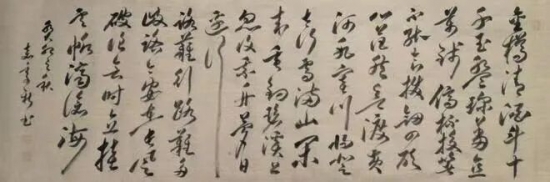 金樽清酒斗十
千玉盤珍羞直
萬錢停杯投箸
不能食拔劍四顧
心茫然欲渡黃
河冰塞川將登
太行雪滿山閑
來垂釣碧溪上
忽復乘舟夢日
邊行
路難行路難多
歧路今安在長風
破浪會有時直挂
雲帆濟滄海